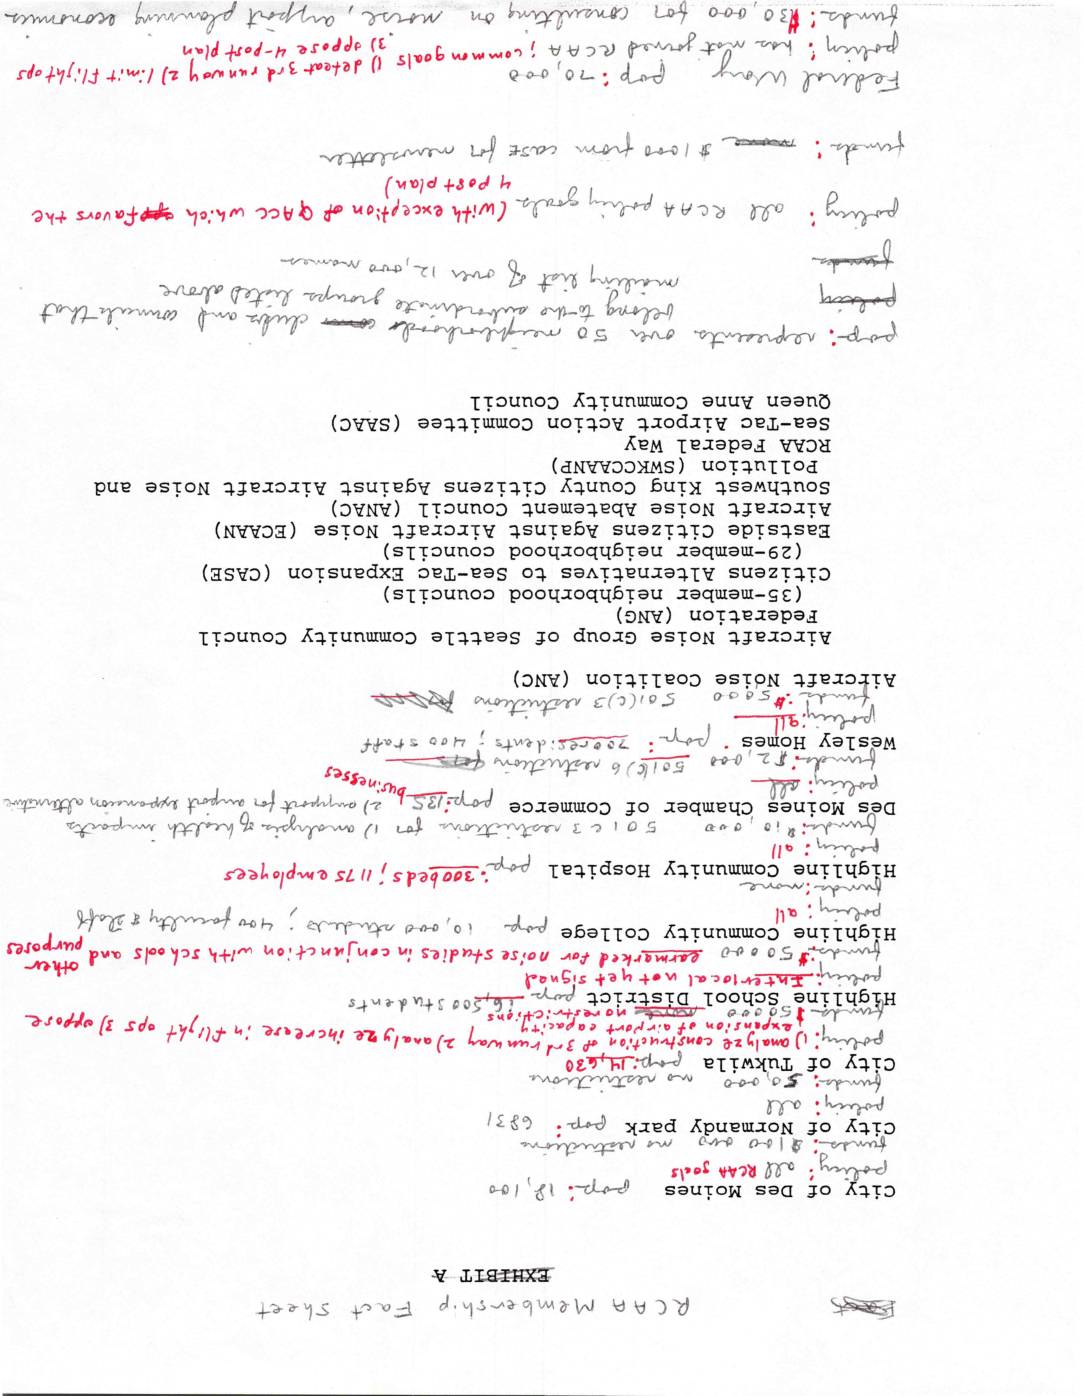 RCAA Membership Fact Sheet
EXHIBIT A
City of Des Moines pop: 18,100
policy: all RCAA goals
funds: $100 000 no restrictions
City of Normandy park pop: 6831
policy: all
funds: 50,000 no restrictions
City of Tukwila pop: 14,630
policy: 1) analyze construction of 3rd runway 2) analyze increase in flight ops 3) oppose
expansion of airport capacity
funds: $50000 no restrictions
Highline School District pop 16,500 students
policy: Interlocal not yet signed
funds: $50000 earmarked for noise studies in conjunction with schools and other
purposes
Highline Community College pop 10,000 students; 400 faculty & staff
policy: all
funds: none
Highline Community Hospital pop: 300 beds; 1175 employees
policy: all
funds: $10,000 501 c 3 restrictions for 1) analysis of health impacts
2) support for airport expansion alternative
Des Moines Chamber of Commerce pop: 135 businesses
policy: all
funds: $2,000 501(c) 6 restrictions
Wesley Homes pop: 700 residents; 400 staff
policy: all
funds: $5000 501(c)3 restrictions
Aircraft Noise Coalition (ANC)
Aircraft Noise Group of Seattle Community Council
Federation (ANG)
(35-member neighborhood councils)
Citizens Alternatives to Sea-Tac Expansion (CASE)
(29-member neighborhood councils)
Eastside Citizens Against Aircraft Noise (ECAAN)
Aircraft Noise Abatement Council (ANAC)
Southwest King County Citizens Against Aircraft Noise and
Pollution (SWKCCAANP)
RCAA Federal Way
Sea-Tac Airport Action Committee (SAAC)
Queen Anne Community Council
pop: represents over 50 neighborhoods clubs and councils that
belong to the subordinate groups listed above
policy
mailing list of over 12,000 names
funds
policy: all RCAA policy goals (with exception of QACC which favors the
4 post plan)
funds: none $1000 from CASE for newsletter
Federal Way pop: 70,000
policy: has not joined RCAA; common goals 1) defeat 3rd runway 2) limit flight ops
3) oppose 4-post plan
funds: $30,000 for consulting on noise, airport planning economics